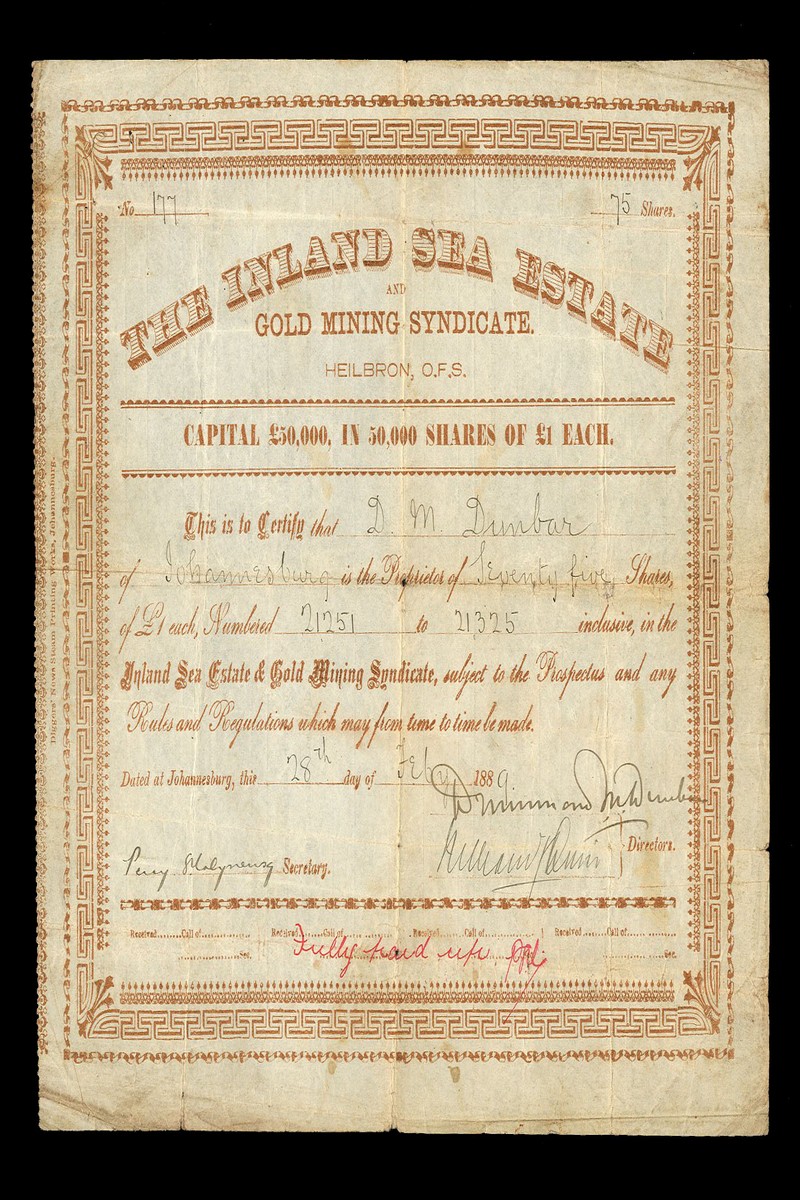 No 177 75 Shares.
THE INLAND SEA ESTATE
AND
GOLD MINING SYNDICATE.
HEILBRON, O.F.S.
CAPITAL £50,000, IN 50,000 SHARES OF £1 EACH.
This is to Certify that D. M. Dunbar
of Johannesburg is the Proprietor of Seventy five Shares,
of £1 each, Numbered 21251 to 21325 inclusive, in the
Inland Sea Estate & Gold Mining Syndicate, subject to the Prospectus and any
Rules and Regulations which may from time to time be made.
Dated at Johannesburg, this 28th day of Feby 1889
Drummond M. Dunbar
Directors.
Percy Molyneux Secretary.
Received........Call of............ Received........Call of............ Received........Call of............ Received........Call of............
Sec. Sec.
Fully paid up.
Diggers' News Steam Printing Works, Johannesburg.